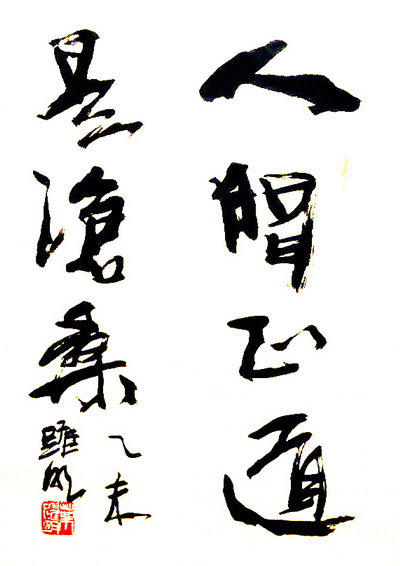 人間正道
是滄桑
乙未